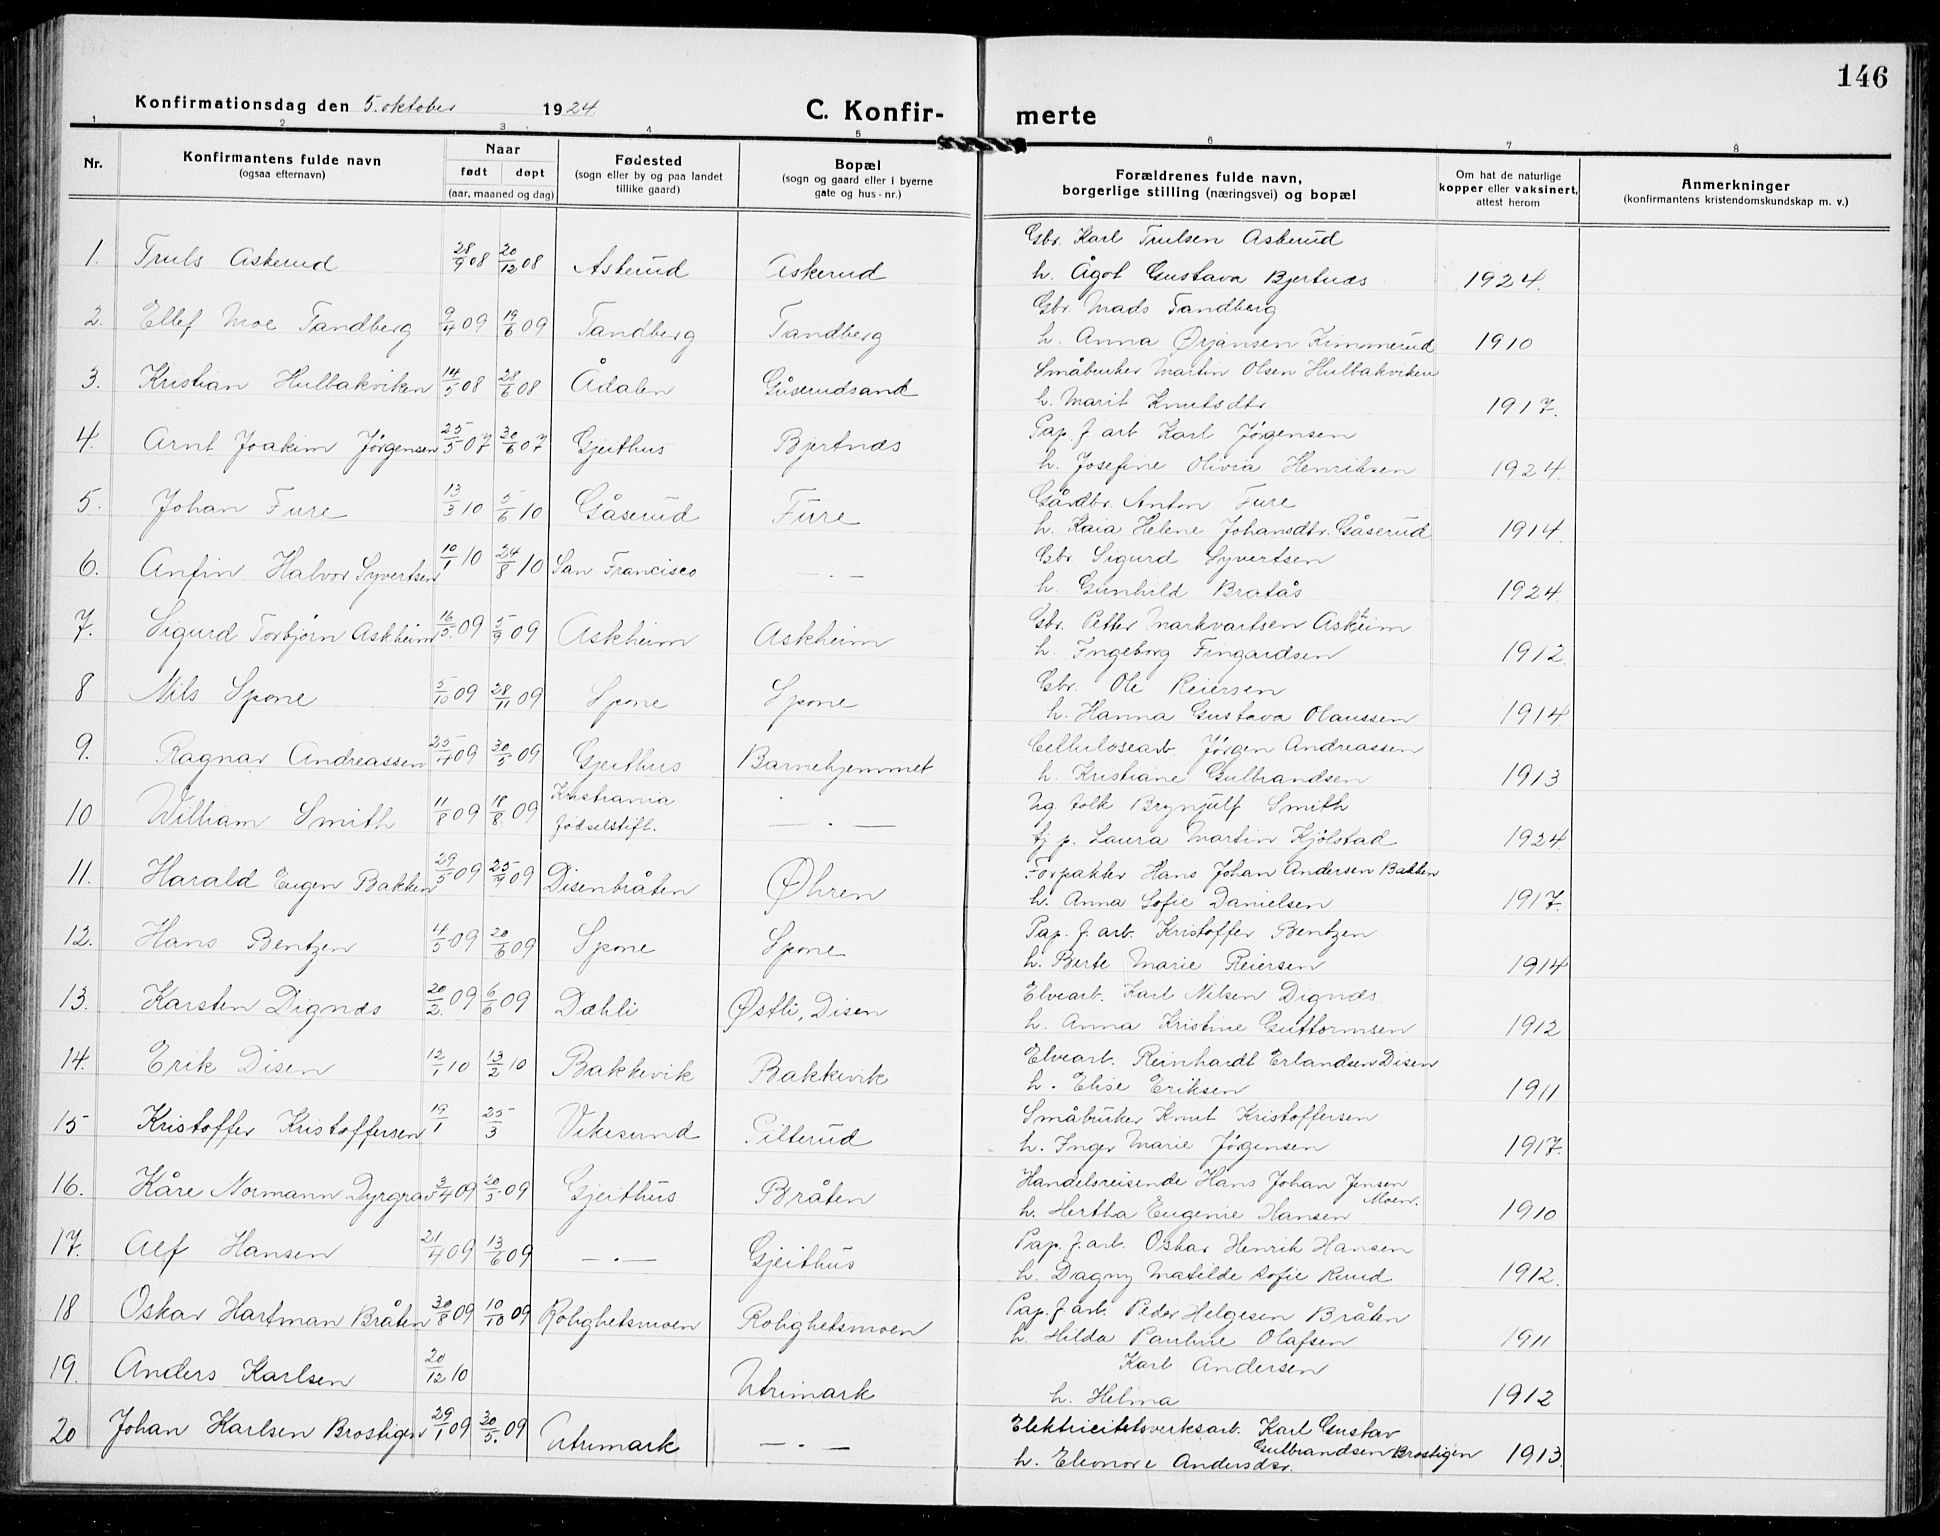 146
Konfirmationsdag den 5. oktober 1924.
C. Konfirmerte
1 2 3 4 5 6 7 8
Nr. | Konfirmantens fulde navn (ogsaa efternavn) | Naar født døpt (aar, maaned og dag) | Fødested (sogn eller by og paa landet tillike gaard) | Bopæl (sogn og gaard eller i byerne gate og hus-nr.) | Forældrenes fulde navn, borgerlige stilling (næringsvei) og bopæl | Om hat de naturlige kopper eller vaksinert, attest herom | Anmerkninger (konfirmantens kristendomskundskap m. v.)
1. Truls Askerud 28/9 08 20/12 08 Askerud Askerud Gbr. Karl Trulsen Askerud
h. Ågot Gustava Bjertnæs 1924.
2. Ellef Moe Tandberg 9/4 09 19/6 09 Tandberg Tandberg Gbr. Mads Tandberg
h. Anna Ørjansen Kimmerud 1910
3. Kristian Hulbakviken 14/5 08 28/6 08 Ådalen Gåserudsand Småbruker Martin Olsen Hulbakviken
h. Marit Knutsdtr 1917.
4. Arnt Joakim Jørgensen 25/5 07 30/6 07 Gjeithus Bjertnæs Pap. f. arb Karl Jørgensen
h. Josefine Olivia Henriksen 1924.
5. Johan Fure 13/3 10 5/6 10 Gåserud Fure Gårdbr. Anton Fure
h. Kaia Helene Johansdtr. Gåserud 1914.
6. Anfin Halvor Syvertsen 10/1 10 24/8 10 San Francisco — . — Gbr Sigurd Syvertsen
h. Gunhild Bratås 1924.
7. Sigurd Torbjørn Askheim 16/5. 09 5/9 09 Askheim Askheim Gbr. Petter Markvartsen Askheim
h. Ingeborg Fingardsen 1912.
8 Nils Spone 5/10 09 28/11 09 Spone Spone Gbr. Ole Reiersen
h. Hanna Gustava Olaussen 1914
9. Ragnar Andreassen 25/4 09 30/5 09 Gjeithus Barnehjemmet Cellulosearb. Jørgen Andreassen
h. Kristiane Gulbrandsen 1913
10 William Smith 11/8 09 18/8. 09 Kristiania fødselstift. — . — Ug. tolk Brynjulf Smith
tj p. Laura Martin Kjølstad 1924
11. Harald Eugen Bakken 29/5 09 25/9 09 Disenbråten Øhren Forpakter Hans Johan Andersen Bakken
h. Anna Sofie Danielsen 1917.
12. Hans Bentzen 4/5 09 20/6 09 Spone Spone Pap. f. arb. Kristoffer Bentzen
h. Berte Marie Reiersen 1914
13. Karsten Dignæs 20/2. 09 6/6 09 Dæhli Østli, Disen Elvearb. Karl Nilsen Dignæs.
h. Anna Kristine Guttormsen 1912
14. Erik Disen 12/1 10 13/2 10 Bakkevik Bakkevik Elvearb. Reinhardt Erlandsen Disen
h. Elise Eriksen 1911
15 Kristoffer Kristoffersen 19/1 25/3 Vikesund Pilterud Småbruker Knut Kristoffersen
h. Inger Marie Jørgensen 1917.
16. Kåre Normann Dyrgrav 3/4 09 20/5 09 Gjeithus Bråten Handelsreisende Hans Johan Jensen Moen.
h. Hertha Eugenie Hansen 1910
17. Alf Hansen 21/4 09 13/6 09 — . — Gjeithus Pap. f. arb. Oskar Henrik Hansen
h. Dagny Matilde Sofie Ruud 1912.
18 Oskar Hartman Bråten 30/8 09 10/10 09 Rolighetsmoen Rolighetsmoen Pap. f. arb. Peder Helgesen Bråten
h. Hilda Pauline Olafsen 1911
19. Anders Karlsen 20/12 10 Utrimark Karl Andersen
h. Helma 1912
20 Johan Karlsen Brostigen 29/1 09 30/5. 09 Utrimark — . — Elektricitetsverksarb. Karl Gustav Gulbrandsen Brostigen
h. Eleonore Andersdtr. 1913.